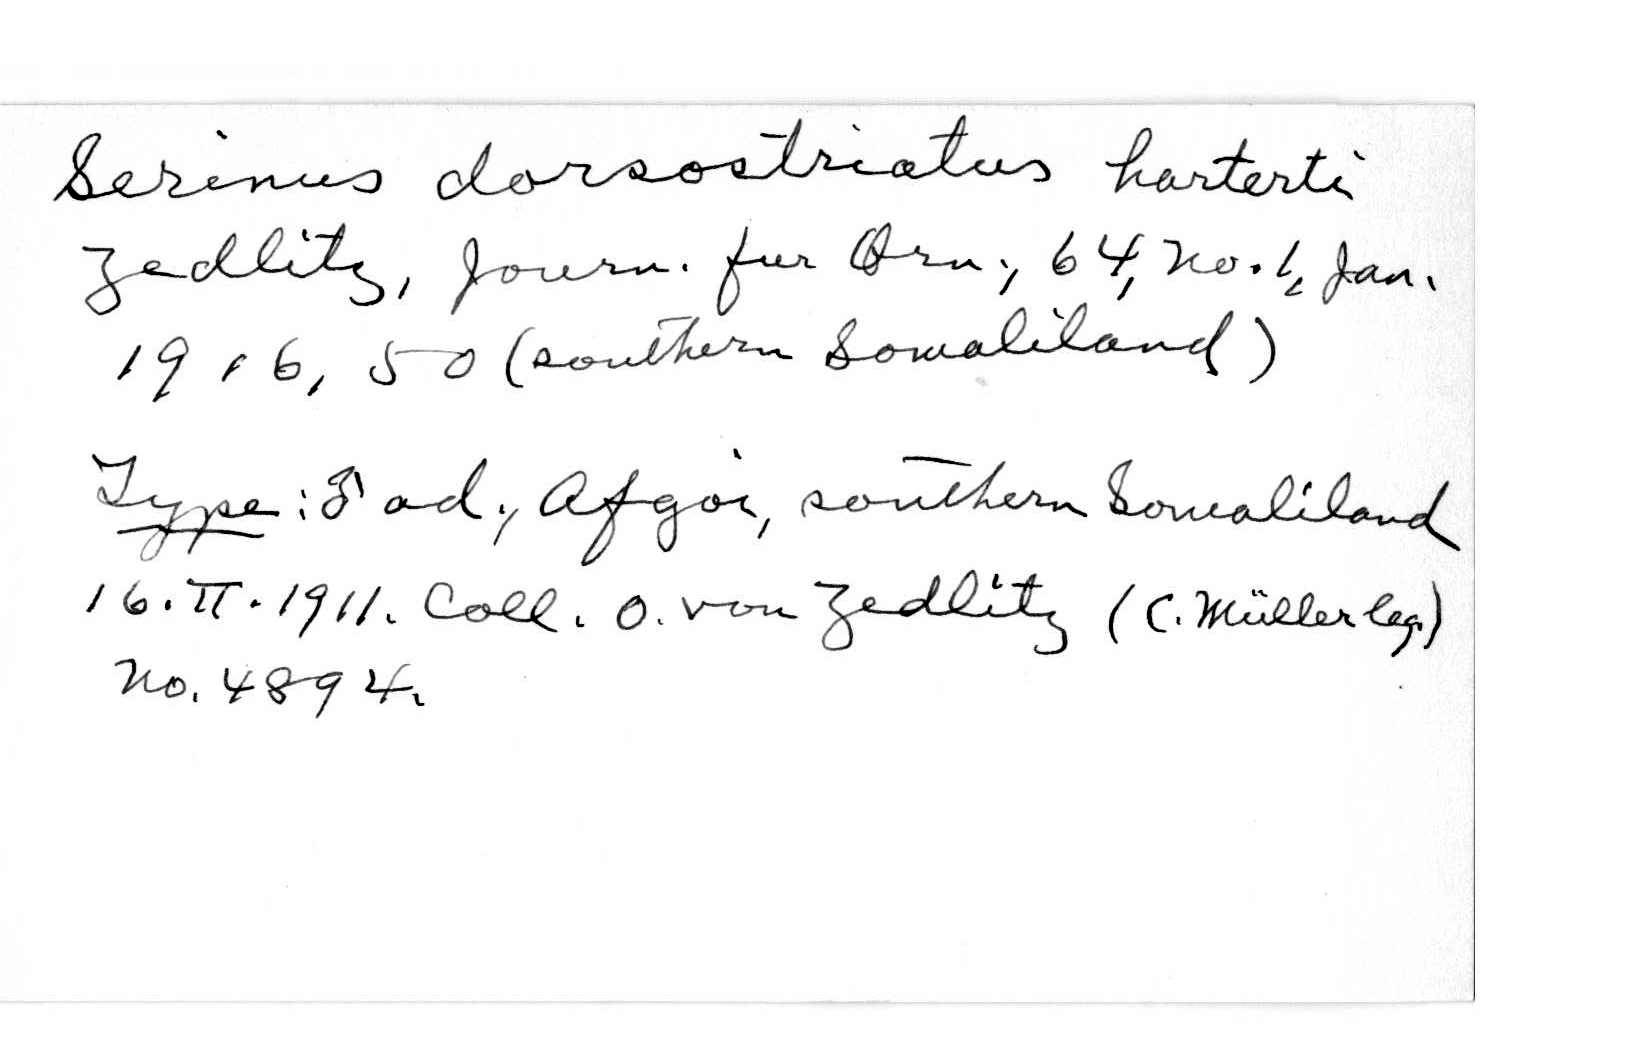 Serinus dorsostriatus harterti
Zedlitz, Journ. fur Orn., 64, no. 1, Jan.
1916, 50 (southern Somaliland)
Type: ♂ ad., Afgoi, southern Somaliland
16.II.1911. Coll. O. von Zedlitz (C. Müller leg.)
no. 4894.